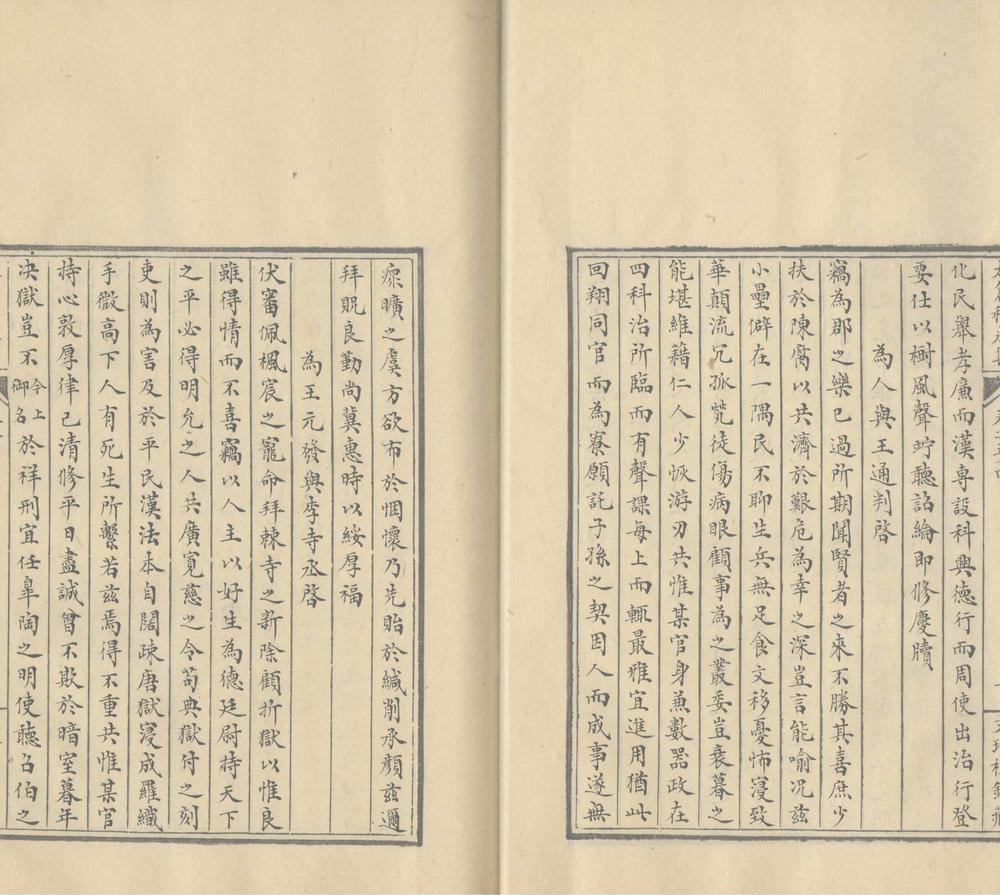 化民舉孝廉而漢専設科興徳行而周使出治行登
要任以樹風聲竚聽詔綸即修慶牘
為人與王通判啓
竊為郡之樂已過所期聞賢者之來不勝其喜庶少
扶於陳腐以共濟於艱危為幸之深豈言能喻况兹
小壘僻在一隅民不聊生兵無足食文移憂怖寖致
華顛流冗孤煢徒傷病眼顧事為之叢委豈衰暮之
能堪維藉仁人少恢游刃共惟某官身兼數器政在
四科治所臨而有聲課每上而輒最雅宜進用猶此
回翔同官而為寮願託子孫之契因人而成事遂無
瘝曠之虞方欲布於悃懷乃先貽於緘削承顔兹邇
拜貺良勤尚冀惠時以綏厚福
為王元發與李寺丞啓
伏審佩楓宸之寵命拜棘寺之新除顧折獄以惟良
雖得情而不喜竊以人主以好生為徳廷尉持天下
之平必得明允之人共廣寛慈之令苟典獄付之刻
吏則為害及於平民漢法本自闊疎唐獄寖成羅織
手微高下人有死生所繫若兹焉得不重共惟某官
持心敦厚律已清修平日盡誠曾不欺於暗室暮年
决獄豈不今上御名於祥刑宜任臯陶之明使聽召伯之